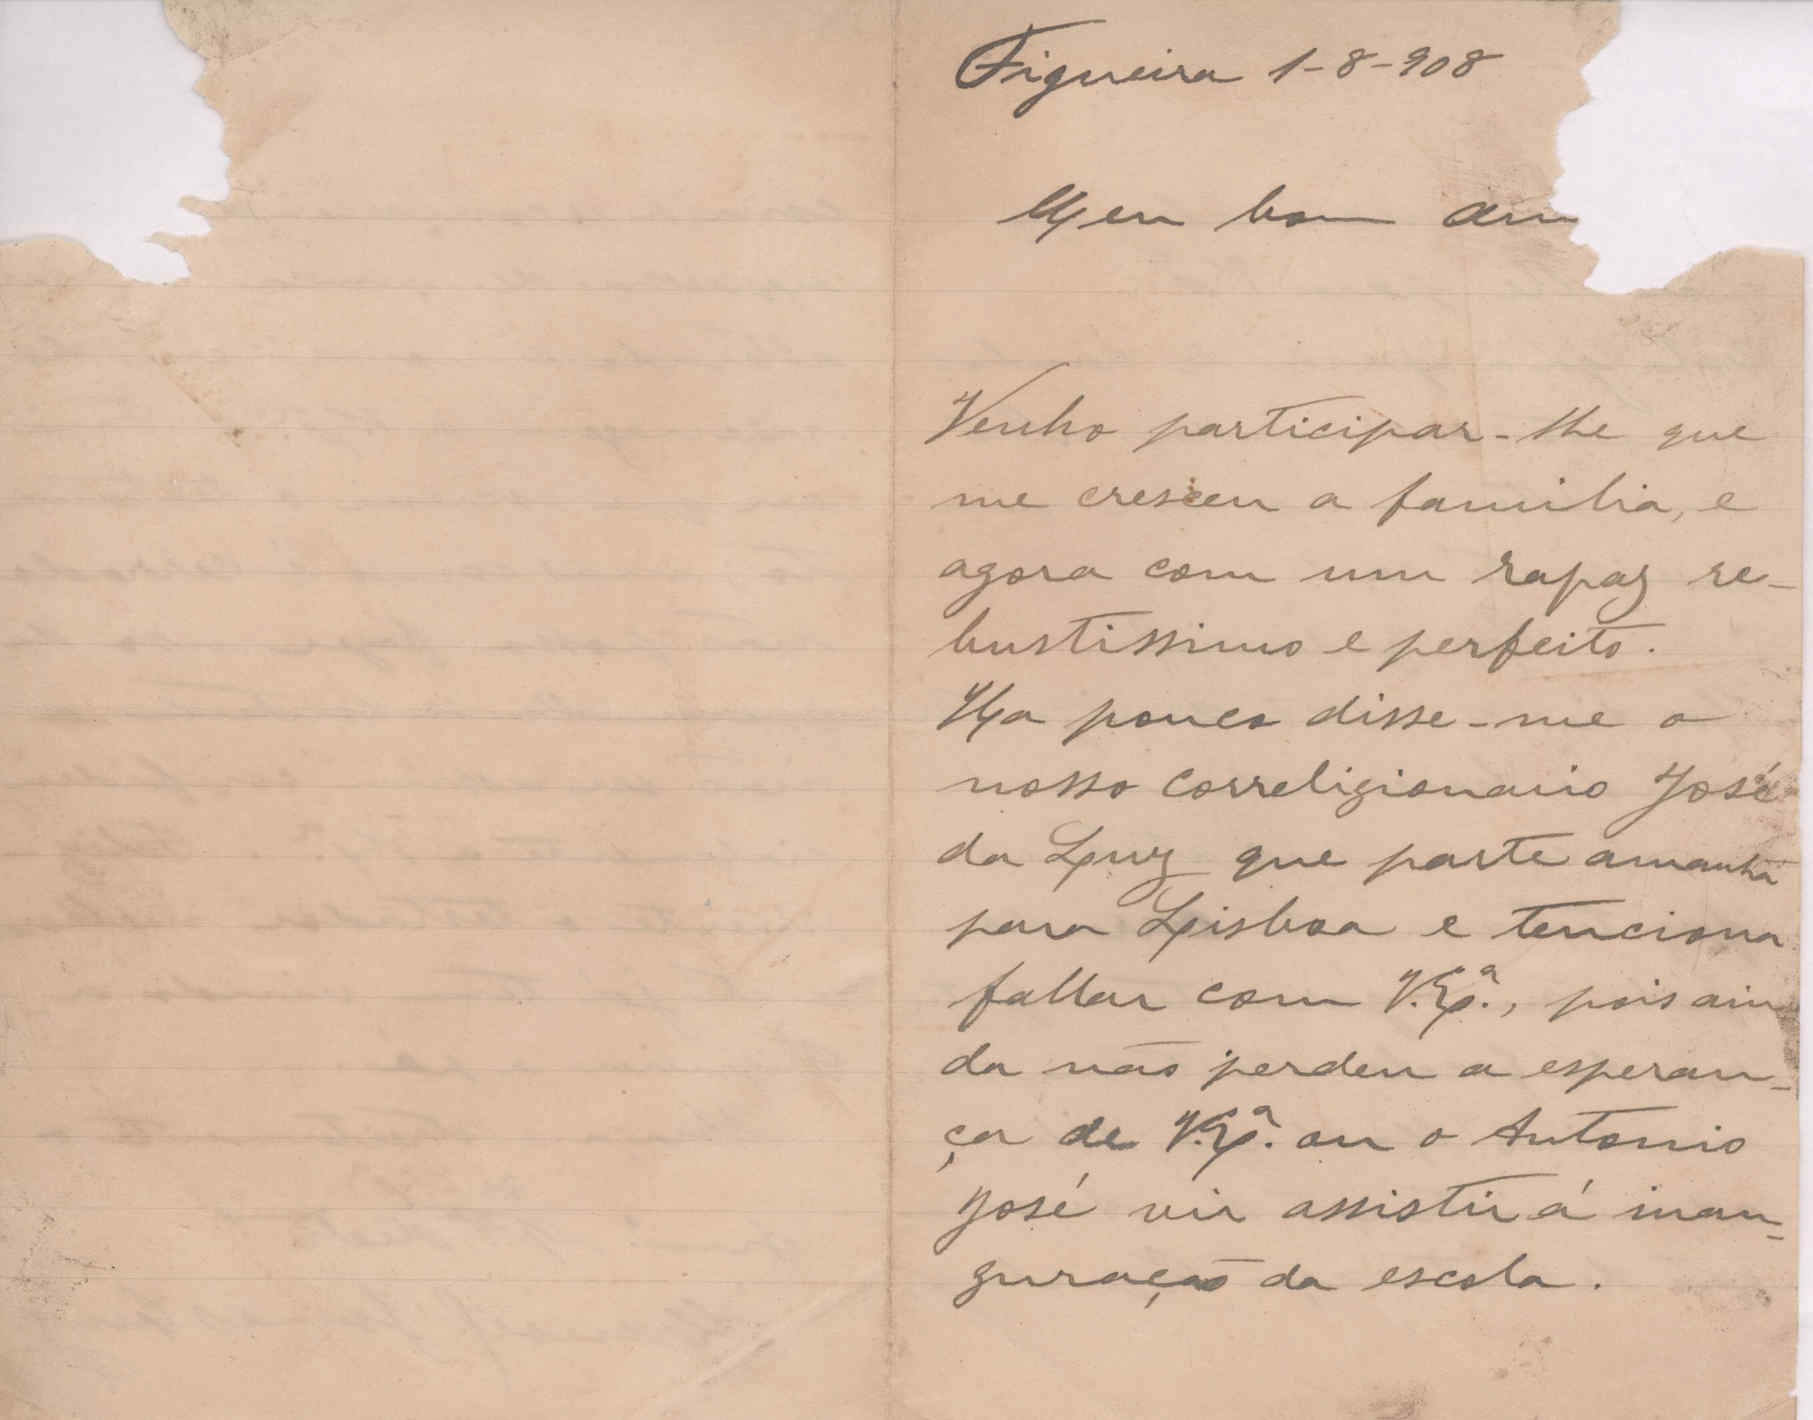 Figueira 1-8-908
Meu bom am
Venho participar-lhe que
me cresceu a familia, e
agora com um rapaz re-
bustissimo e perfeito.
Ha pouco disse-me o
nosso correligionario José
da Luz que parte amanhã
para Lisboa e tenciona
fallar com V. Exª., pois ain
da não perdeu a esperan-
ça de V. Exª. ou o Antonio
José vir assistir á inau-
guração da escola.